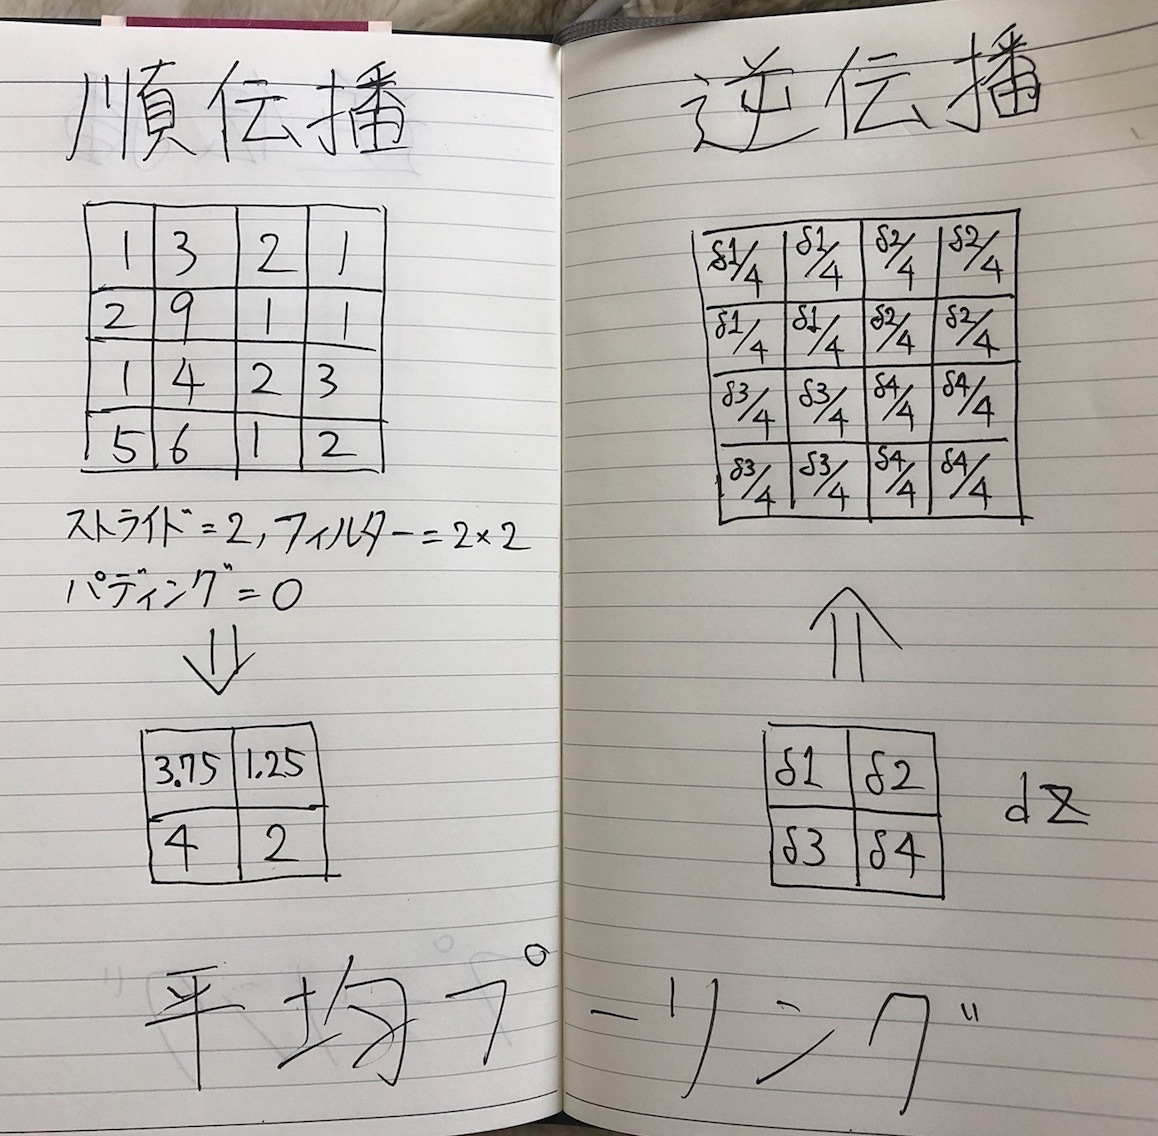 順伝播
1 3 2 1
2 9 1 1
1 4 2 3
5 6 1 2
ストライド=2,フィルター=2×2
パディング=0
⇓
3.75 1.25
4 2
逆伝播
δ1/4 δ1/4 δ2/4 δ2/4
δ1/4 δ1/4 δ2/4 δ2/4
δ3/4 δ3/4 δ4/4 δ4/4
δ3/4 δ3/4 δ4/4 δ4/4
⇑
δ1 δ2
δ3 δ4
dz
平均プーリング